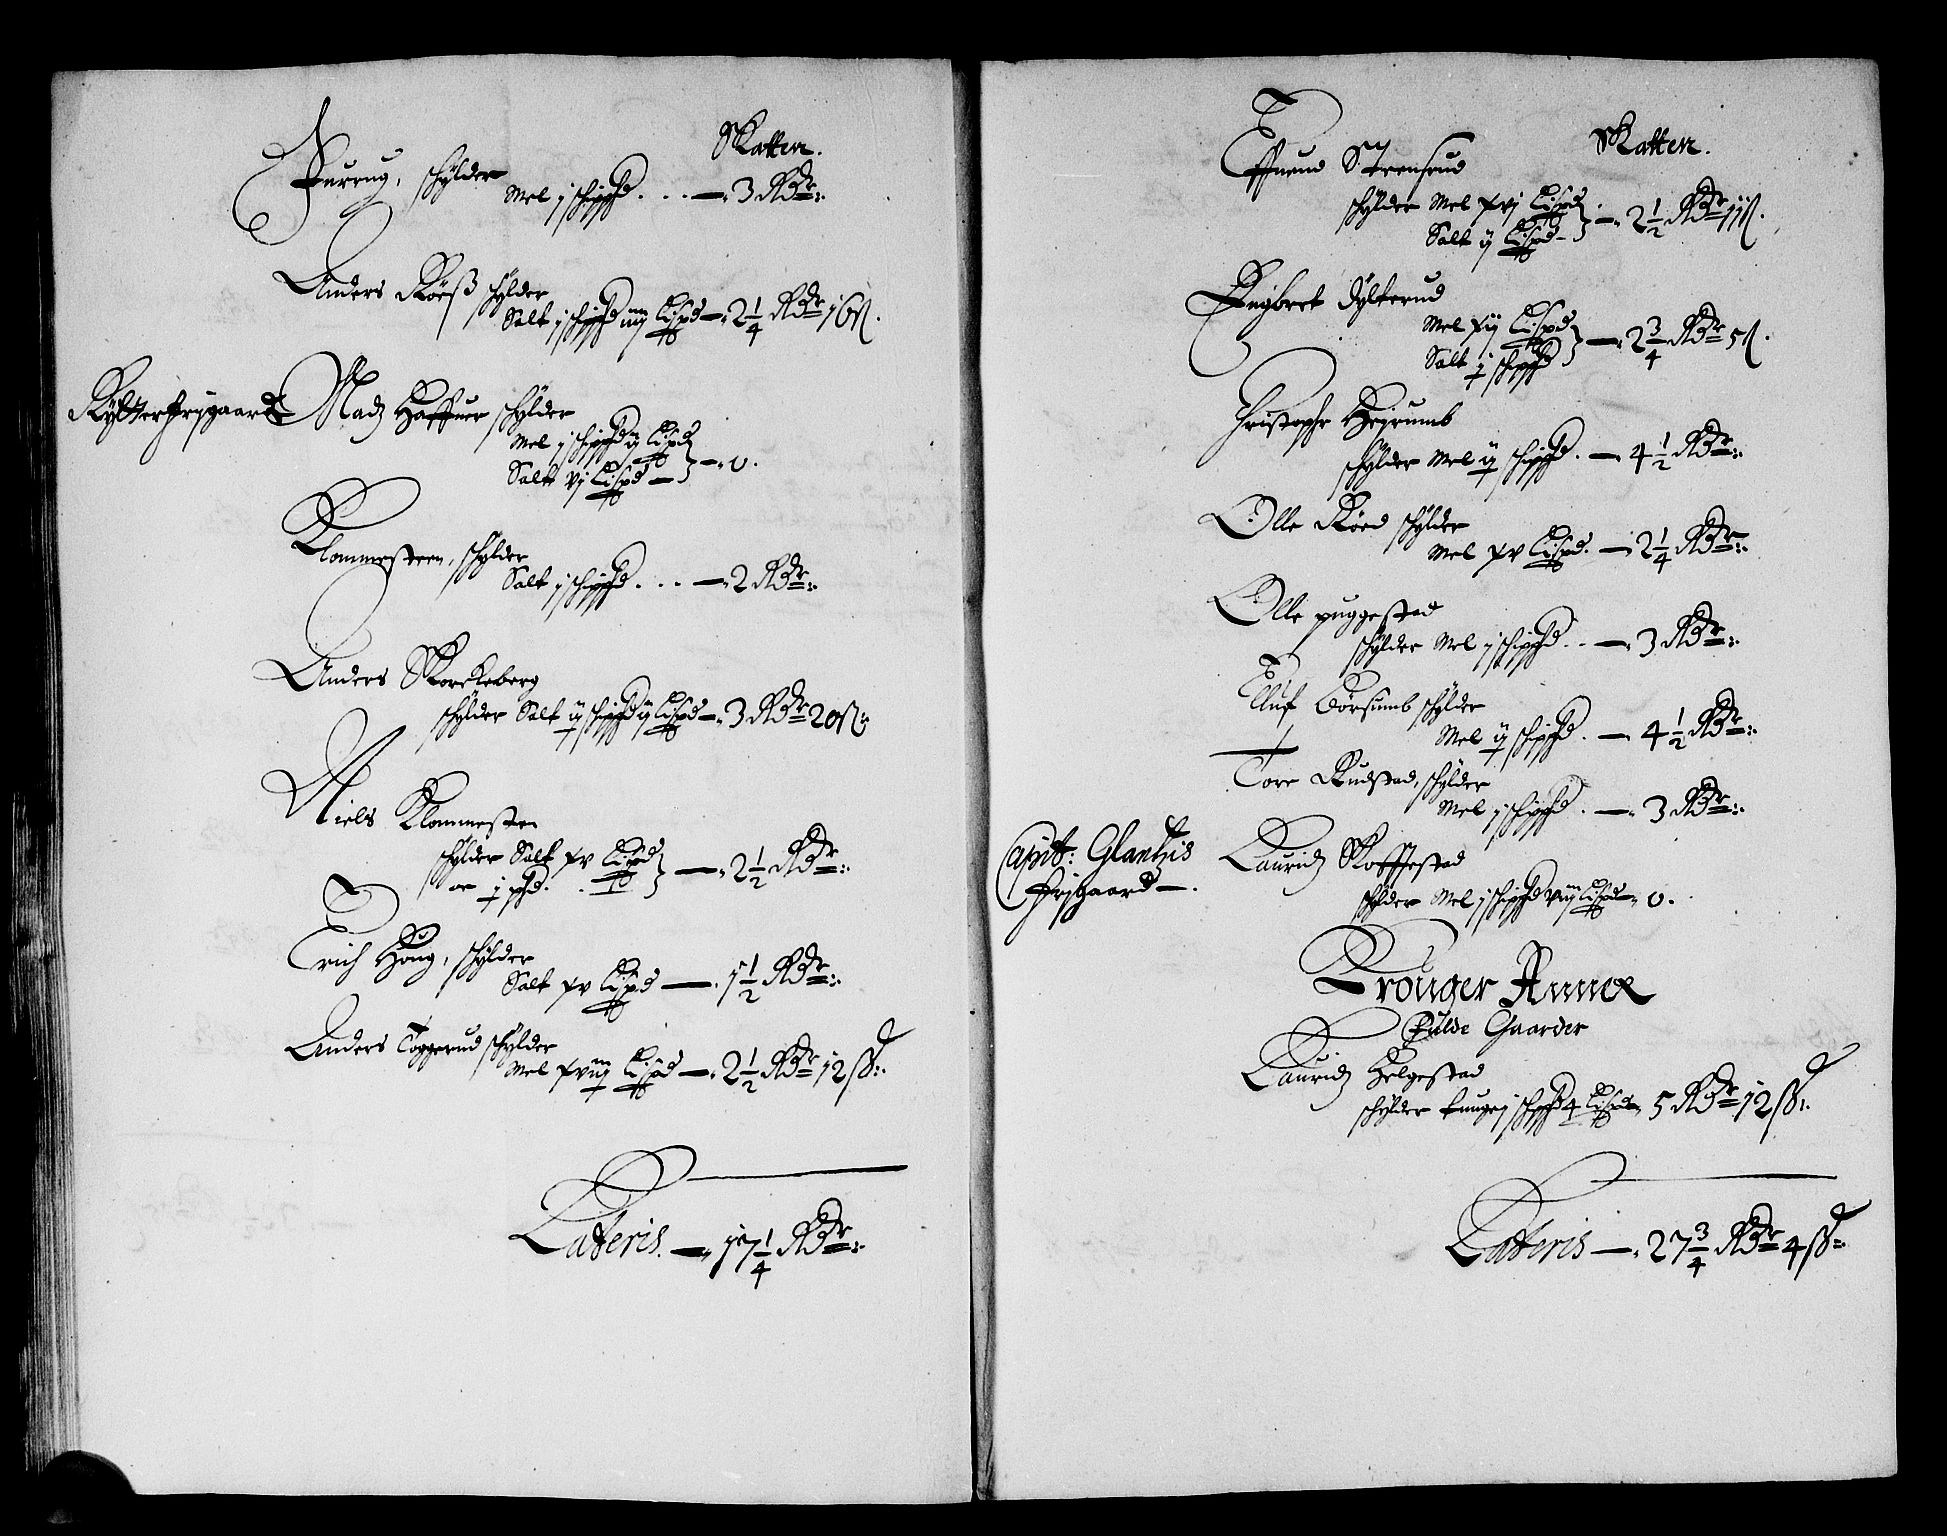 Skatten.
Furrug, schylder
Mel j schippd . . . — 3 Rdr
Anders Röeß schylder
Salt j schippd iiij Lispd — 2 1/4 Rdr 16 ß.
Rytterfrijgaard
Madz Haffner schylder
Mel j schippd ij Lispd
Salt vj Lispd — 0.
Klommesteen, schylder
Salt j schippd . . . — 2 Rdr
Anders Skorckeberg
schylder Salt ij schippd ij Lispd — 3 Rdr 20 ß
Niels Klommesten
schylder Salt xv Lispd
oc j pd. — 2 1/2 Rdr
Erich Houg, schylder
Salt xv Lispd — 1 1/2 Rdr
Anders Toggerud schylder
Mel xviij Lispd — 2 1/2 Rdr 12 ß
Lateris. — 17 1/4 Rdr
Skatten.
Effuend Steensrud
schylder Mel xvj Lispd
Salt ij Lispd — 2 1/2 Rdr 11 ß.
Engbret Dylterud
Mel xij Lispd
Salt j schippd — 2 3/4 Rdr 5 ß.
Christopher Heyrumb
schylder Mel ij schippd. — 4 1/2 Rdr
Olle Röed schylder
Mel xv Lispd. — 2 1/4 Rdr
Olle puggestad
schylder Mel j schippd . . — 3 Rdr
Elluf Börsumb schylder
Mel ij schippd. — 4 1/2 Rdr
Tore Rudstad, schylder
Mel j schippd. — 3 Rdr
Capit: Glanthzis
frijgaard —.
Lauridz Skoffestad
schylder Mel j schippd viij Lispd — 0.
Trouger Annex
Fulde Gaarder
Lauridz Helgestad
schylder tunge j schippd 4 Lispd 5 Rdr 12 ß
Lateris — 27 3/4 Rdr 4 ß